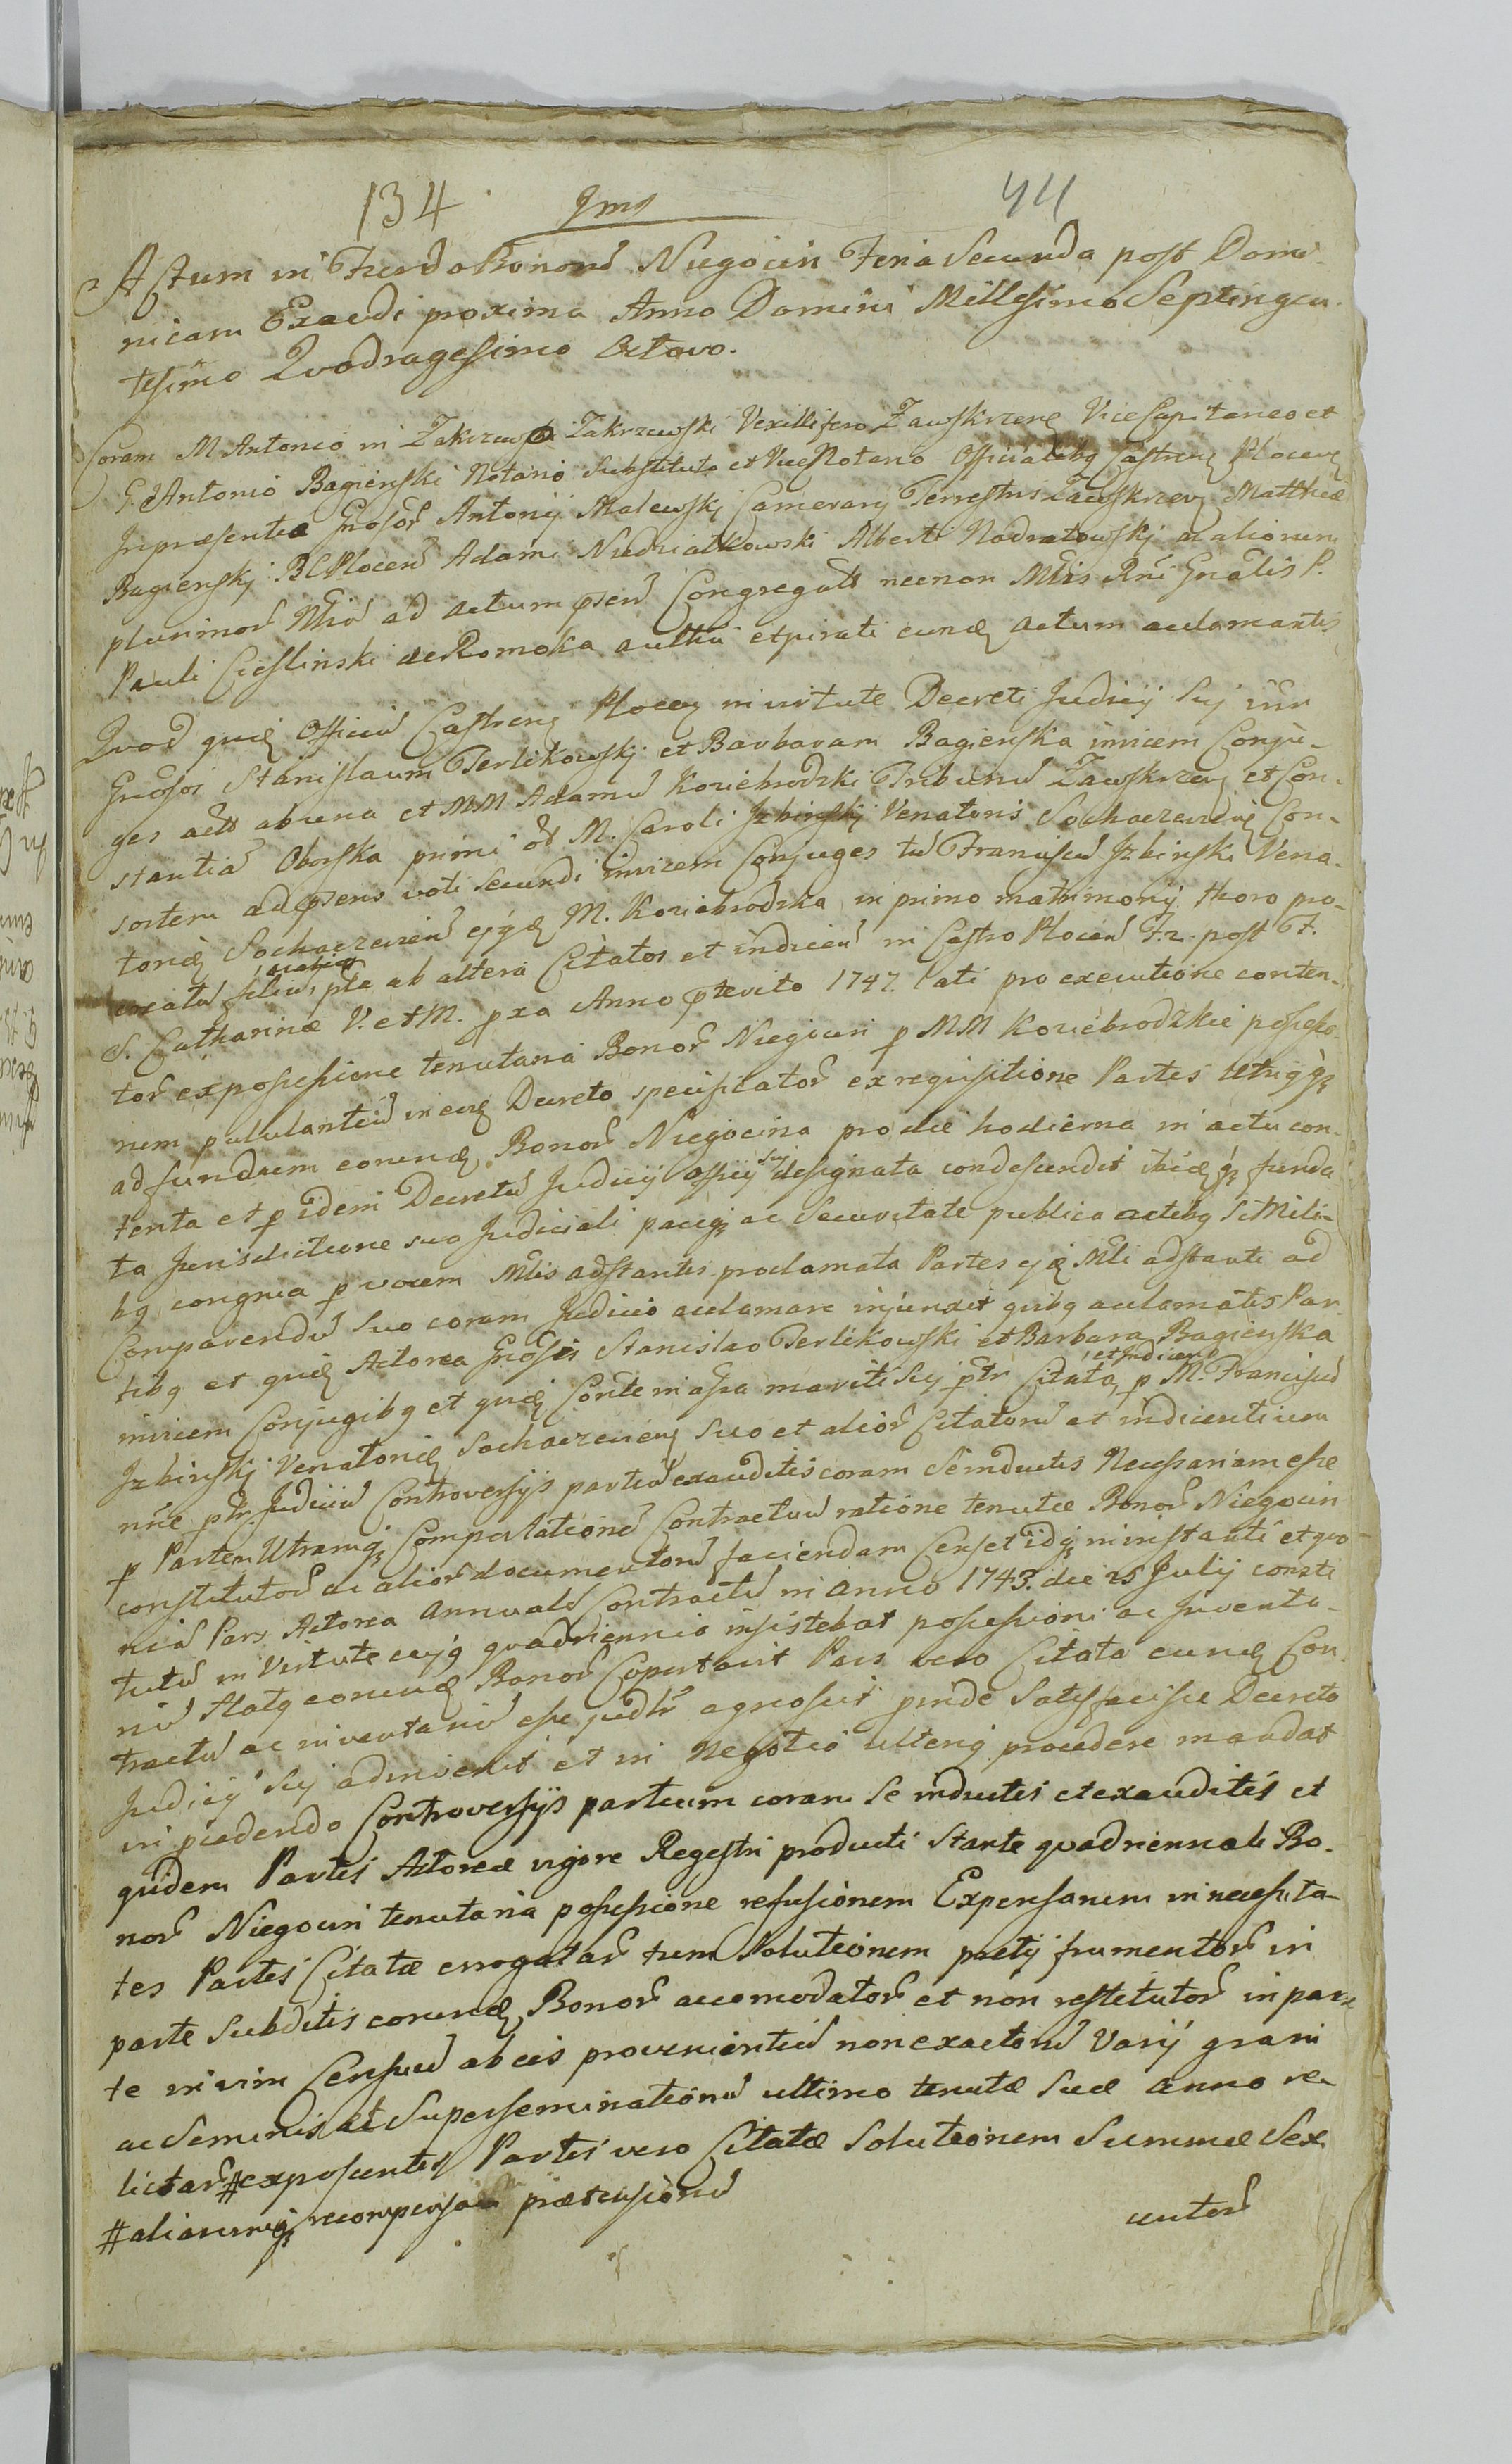 134 Jms 44
Actum in Fundo Bonorũ Niegocin Feria Secunda post Domi-
nicam Exaudi proxima Anno Domini Millesimo Septingen-
tesimo Quodragesimo Octavo.
Coram M. Antonio in Zakrzewo Zakrzewski Vexillifero Zawskrzenẽ ViceCapitaneo et
G. Antonio Bagienski Notario Substituto et ViceNotario Officialibq Castrenẽ Plocenẽ
Inpraesentia Gnosoř Antonij Malewskj Camerarij Terrestris Zawskrzenẽ Matthiæ
Bagienskj BCPlocenũ Adami Niedzialkowski Alberti Nadratowskj ac aliorum
plurimoř Mtiũ ad actum psenũ Congregatř necnon Mtris Rni Gnalis P.
Pauli Cieslinski de Romoka authũ etpirati eundẽ actum aclamantis
Quod quidẽ Officiũ Castrenẽ Plocenẽ in virtute Decreti Judicij Suj inter
Gnosos Stanislaum Perlikowskj et Barbaram Bagienska invicem Conju-
ges actř ab una et MM Adamũ Koziebrodzki Tribunũ Zawskrzenẽ et Con-
stantiã Oborska primi ol M. Caroli Izbinskj Venatoris Sochaczevienẽ Con-
sortem ad psens voti secundi invicem Conjuges tũ Franciscũ Izbinski Vena-
toridẽ Sochaczevienũ ejqdẽ M. Koziebrodzka in primo matrimonij thoro pro-
creatũ filiũ, pte ab altera Citatos et indicenũ in Castro Plocenũ F. 2. post F.
S. Catharinæ V. et M. pxa Anno pterito 1747. lati pro executione conten-
toř expossessione tenutaria Bonoř Niegocin p MM Koziebrodzkie possesso-
nem pululantiũ in eodẽ Decreto specificatoř ex requisitione Partis Utriqq
ad fundum eorundẽ Bonoř Niegocina pro die hodierna in actu con-
tenta et p idem Decretũ Judicij Offcij suj designata condescendit ibidẽ q funda
ta Jurisdictione sua Judiciali paceq ac Securitate publica actibq Si Mili-
bq congrua p vocem Mtris adstantis proclamata Partes ejdẽ Mtri adstanti ad
Comparendũ suo coram Judicio aclamare injunxit quibq aclamatis Par-
tibq et quidẽ Actorea Gnosis Stanislao Perlikowski et Barbara Bagienska
invicem Conjugibq et quidẽ Conte in assa mariti Suj ptr Citata, et Indicenũ p M. Franciscũ
Izbinskj Venatoridẽ Sochaczevienẽ Suo et alioř Citatorũ et indicentium
nřie ptr. Judiciũ Controversijs partiũ exauditis coram Seinductis Necessariam esse
p Partem Utramq Comportationẽ Contractuũ ratione tenutæ Bonoř Niegocin
constitutoř ac alioř documentorũ faciendam Censet idq in instanti et quo-
niã Pars Actorea Annualẽ Contractũ in anno 1743. die 25 Julij consti-
tutũ in Virtute cujq quadriennio insistebat possessioni ac Inventa-
riũ Statq eorundẽ Bonoř Coportavit Pars vero Citata eundẽ Con-
tractũ ac inventariũ esse judtř agnoscit pinde Satisfecisse Decreto
Judicij Suj adinvenit et in Negotio ulteriq procedere mandat
in pcedendo Controversijs partium coram Se inductis et exauditis et
quidem Partis Actoreæ vigore Regestri producti Stante quadriennali Bo-
noř Niegocin tenutaria possessione refusionem Expensarum in necessita-
tes Partis Citatæ errogatař tum Solutionem pretij frumentoř in
parte Subditis eorundẽ Bonoř accomodatoř et non restitutoř in par-
te in vim Censuũ ab eis provenientiũ non exactorũ Varij grani
ac Seminis et Superseminationũ ultimo tenutæ Suæ anno re-
lictař # exposcentis Partis vero Citatæ Solutionem Summæ Sex
# aliarumq recompensam prætensionũ
centoř